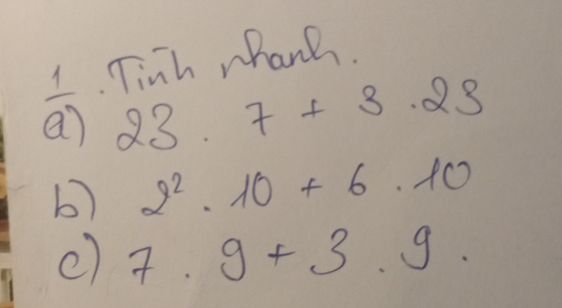 1. Tính nhanh.
a) 23 . 7 + 3 . 23
b) 2² . 10 + 6 . 10
c) 7 . 9 + 3 . 9 .